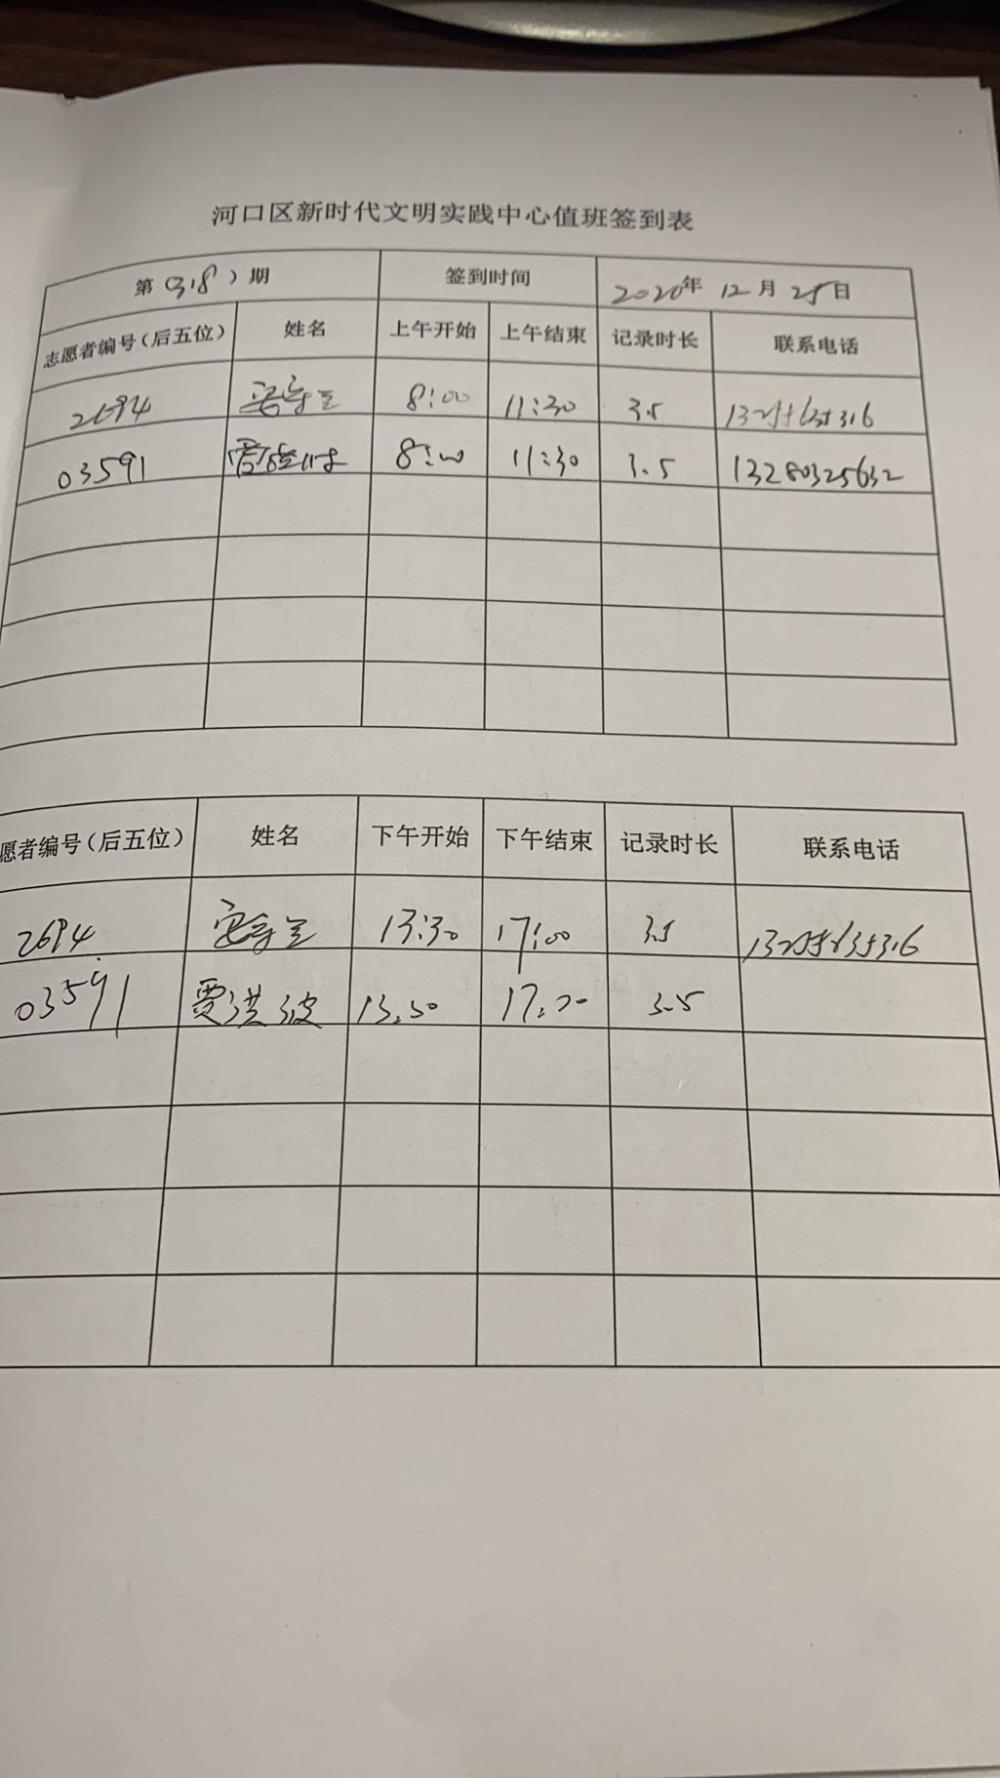 河口区新时代文明实践中心值班签到表
第(318)期 签到时间 2020年 12月25日
志愿者编号(后五位) 姓名 上午开始 上午结束 记录时长 联系电话
2694 8:00 11:30 3.5
03591 8:00 11:30 3.5 13280325632
愿者编号(后五位) 姓名 下午开始 下午结束 记录时长 联系电话
2694 13:30 17:00 3.5
03591 贾洪波 13:30 17:00 3.5